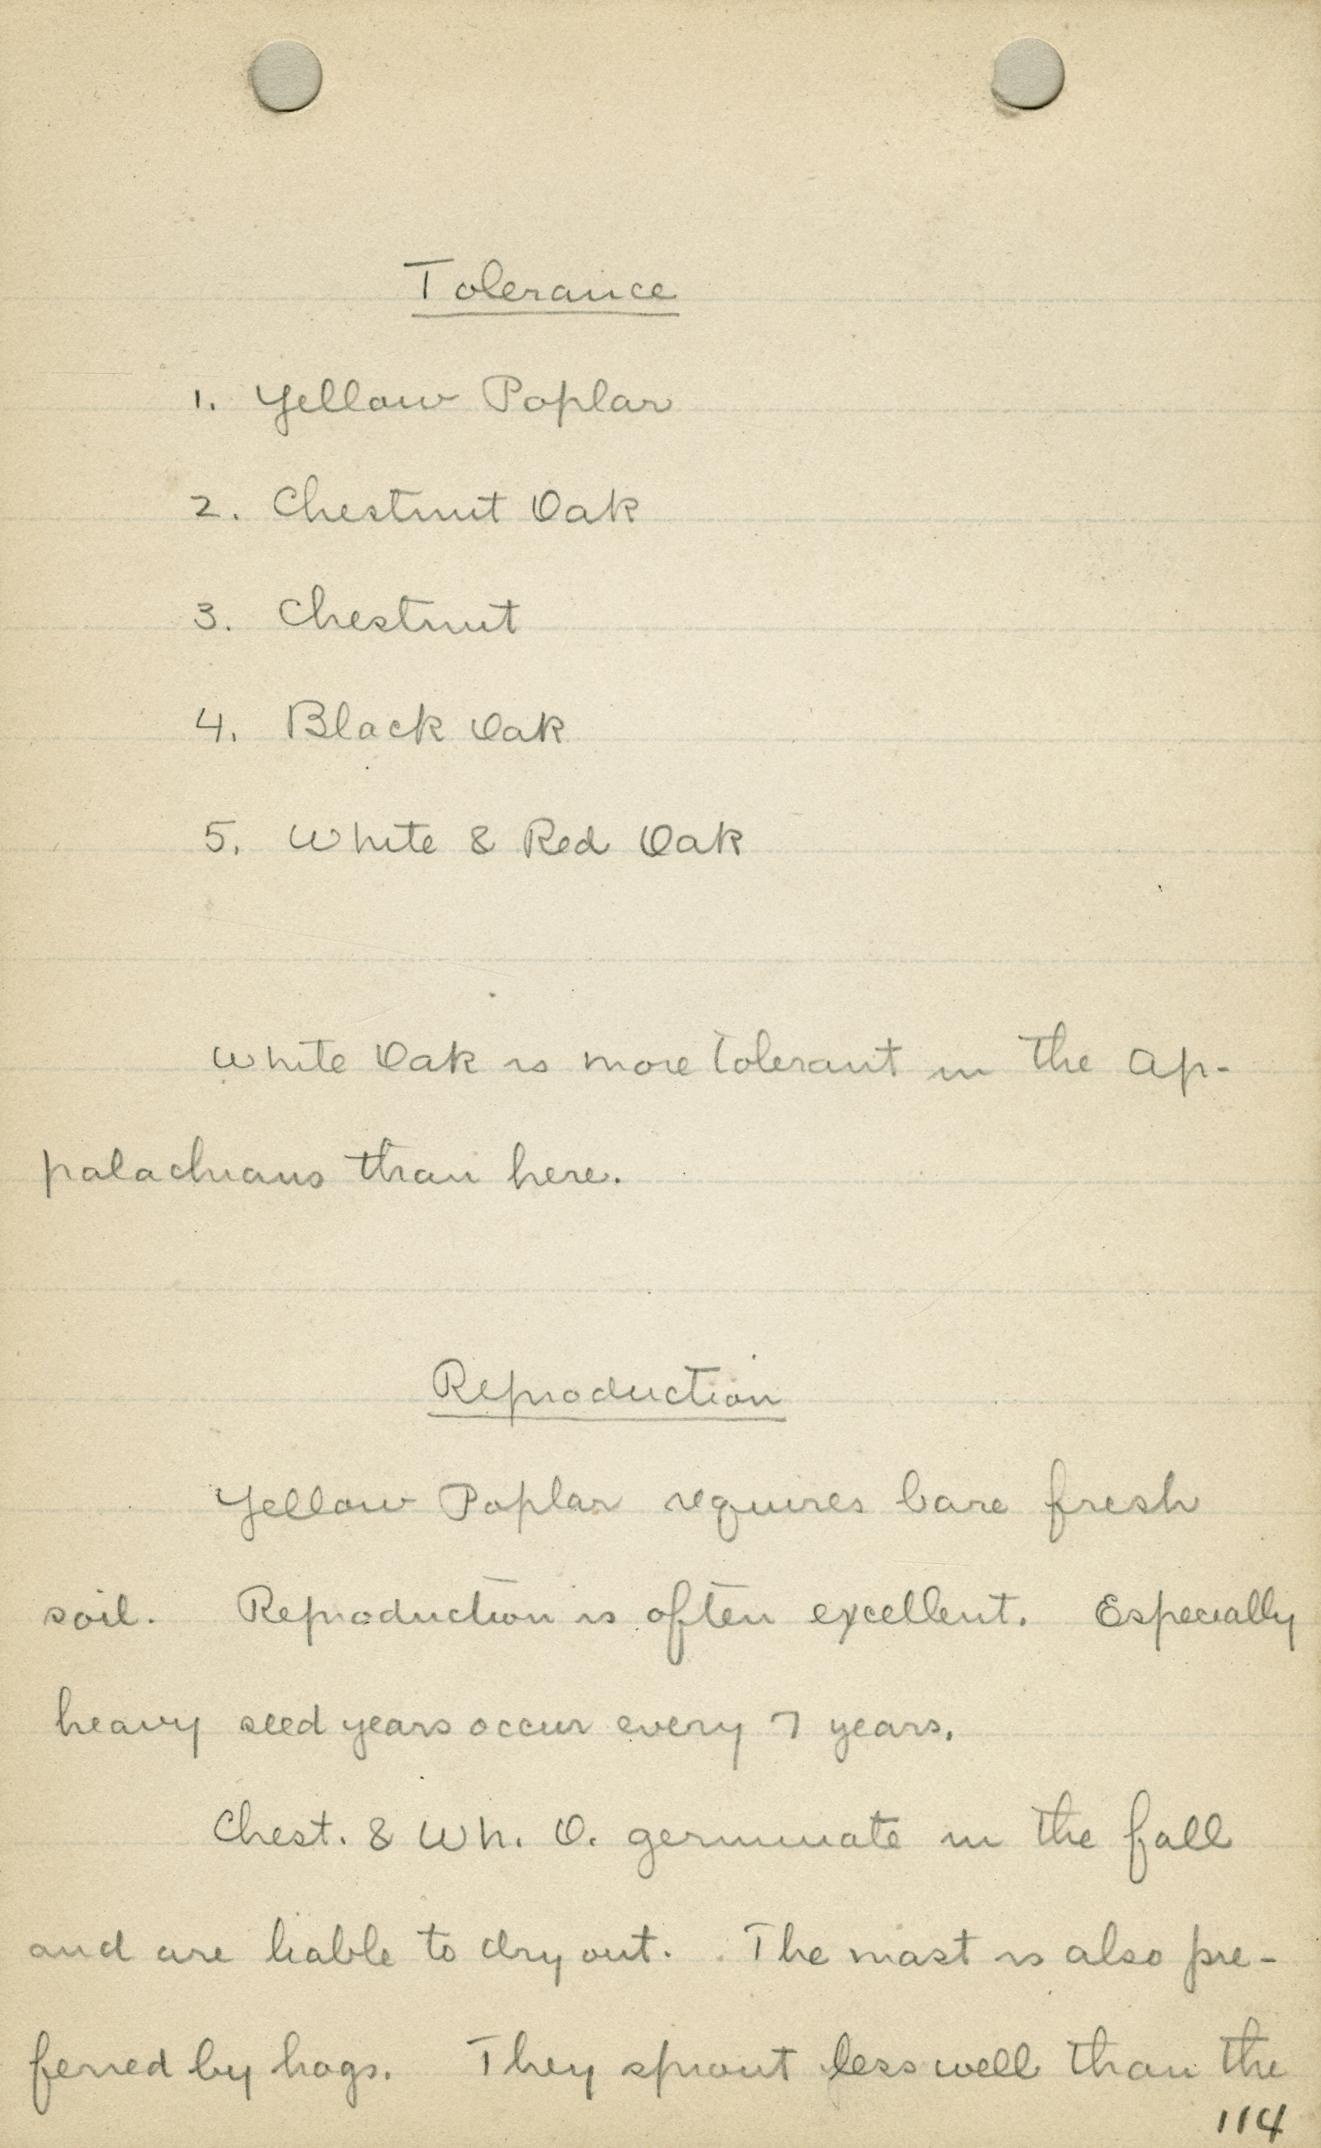 Tolerance
1. Yellow Poplar
2. Chestnut Oak
3. Chestnut
4. Black Oak
5. White & Red Oak
White Oak is more tolerant in the Ap-
palachians than here.
Reproduction
Yellow Poplar requires bare fresh
soil. Reproduction is often excellent. Especially
heavy seed years occur every 7 years.
Chest. & Wh. O. germinate in the fall
and are liable to dry out. The mast is also pre-
ferred by hogs. They sprout less well than the
114